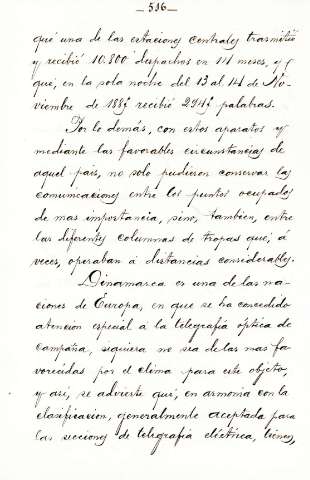 —516—
que una de las estaciones centrales trasmitió
y recibió 10.800 despachos en 14 meses, y
que, en la sola noche del 13 al 14 de No-
viembre de recibió palabras.
Por lo demás, con estos aparatos y
mediante las favorables circunstancias de
aquel país, no solo pudieron conservar las
comunicaciones entre los puntos ocupados
de mas importancia, sino, tambien, entre
las diferentes columnas de tropas que, á
veces, operaban á distancias considerables.
Dinamarca es una de las na-
ciones de Europa, en que se ha concedido
atencion especial a la telegrafía óptica de
campaña, siquiera no sea de las mas fa-
vorecidas por el clima para este objeto,
y así, se advierte que, en armonía con la
clasificacion, generalmente aceptada para
las secciones de telegrafía eléctrica, tienen,